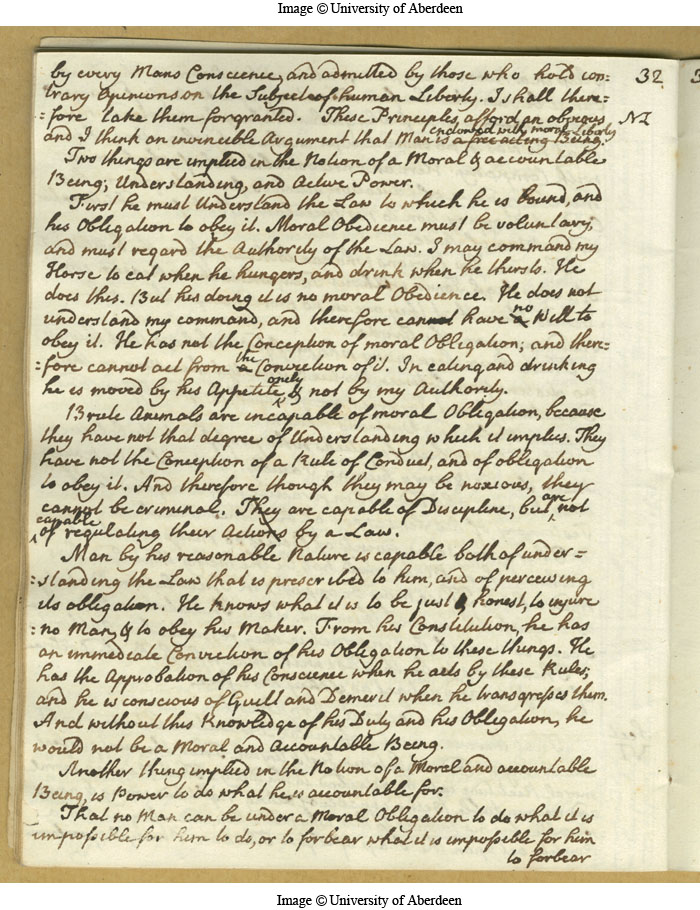 Image © University of Aberdeen
32
by every Mans Conscience, and admitted by those who hold con=
trary Opinions on the Subject of human Liberty. I shall there=
=fore take them for granted. These Principles, afford an obvious
N I
and I think an invincible Argument that Man is a free acting Being.
endowed with moral Liberty
Two things are implied in the Notion of a Moral & accountable
Being; Understanding, and Active Power.
First he must Understand the Law to which he is bound, and
his Obligation to obey it. Moral Obedience must be voluntary,
and must regard the Authority of the Law. I may command my
Horse to eat when he hungers, and drink when he thirsts. He
does this. But his doing it is no moral Obedience. He does not
understand my command, and therefore cannot have a no Will to
obey it. He has not the Conception of moral Obligation; and there=
=fore cannot act from a the Conviction of it. In eating and drinking
he is moved by his Appetite only, & not by my Authority.
Brute Animals are incapable of moral Obligation, because
they have not that degree of Understanding which it implies. They
have not the Conception of a Rule of Conduct, and of obligation
to obey it. And therefore though they may be noxious, they
cannot be criminal. They are capable of Discipline, but are not
capable
of regulating their Actions by a Law.
Man by his reasonable Nature is capable both of under=
=standing the Law that is prescribed to him, and of perceiving
its obligation. He knows what it is to be just & honest, to injure
=no Man, & to obey his Maker. From his Constitution, he has
an immediate Conviction of his Obligation to these things. He
has the Approbation of his Conscience when he acts by these Rules;
and he is conscious of Guilt and Demerit when he transgresses them.
And without this Knowledge of his Duty and his Obligation, he
would not be a Moral and Accountable Being.
Another thing implied in the Notion of a Moral and accountable
Being, is Power to do what he is accountable for.
That no Man can be under a Moral Obligation to do what it is
impossible for him to do, or to forbear what it is impossible for him
to forbear
Image © University of Aberdeen